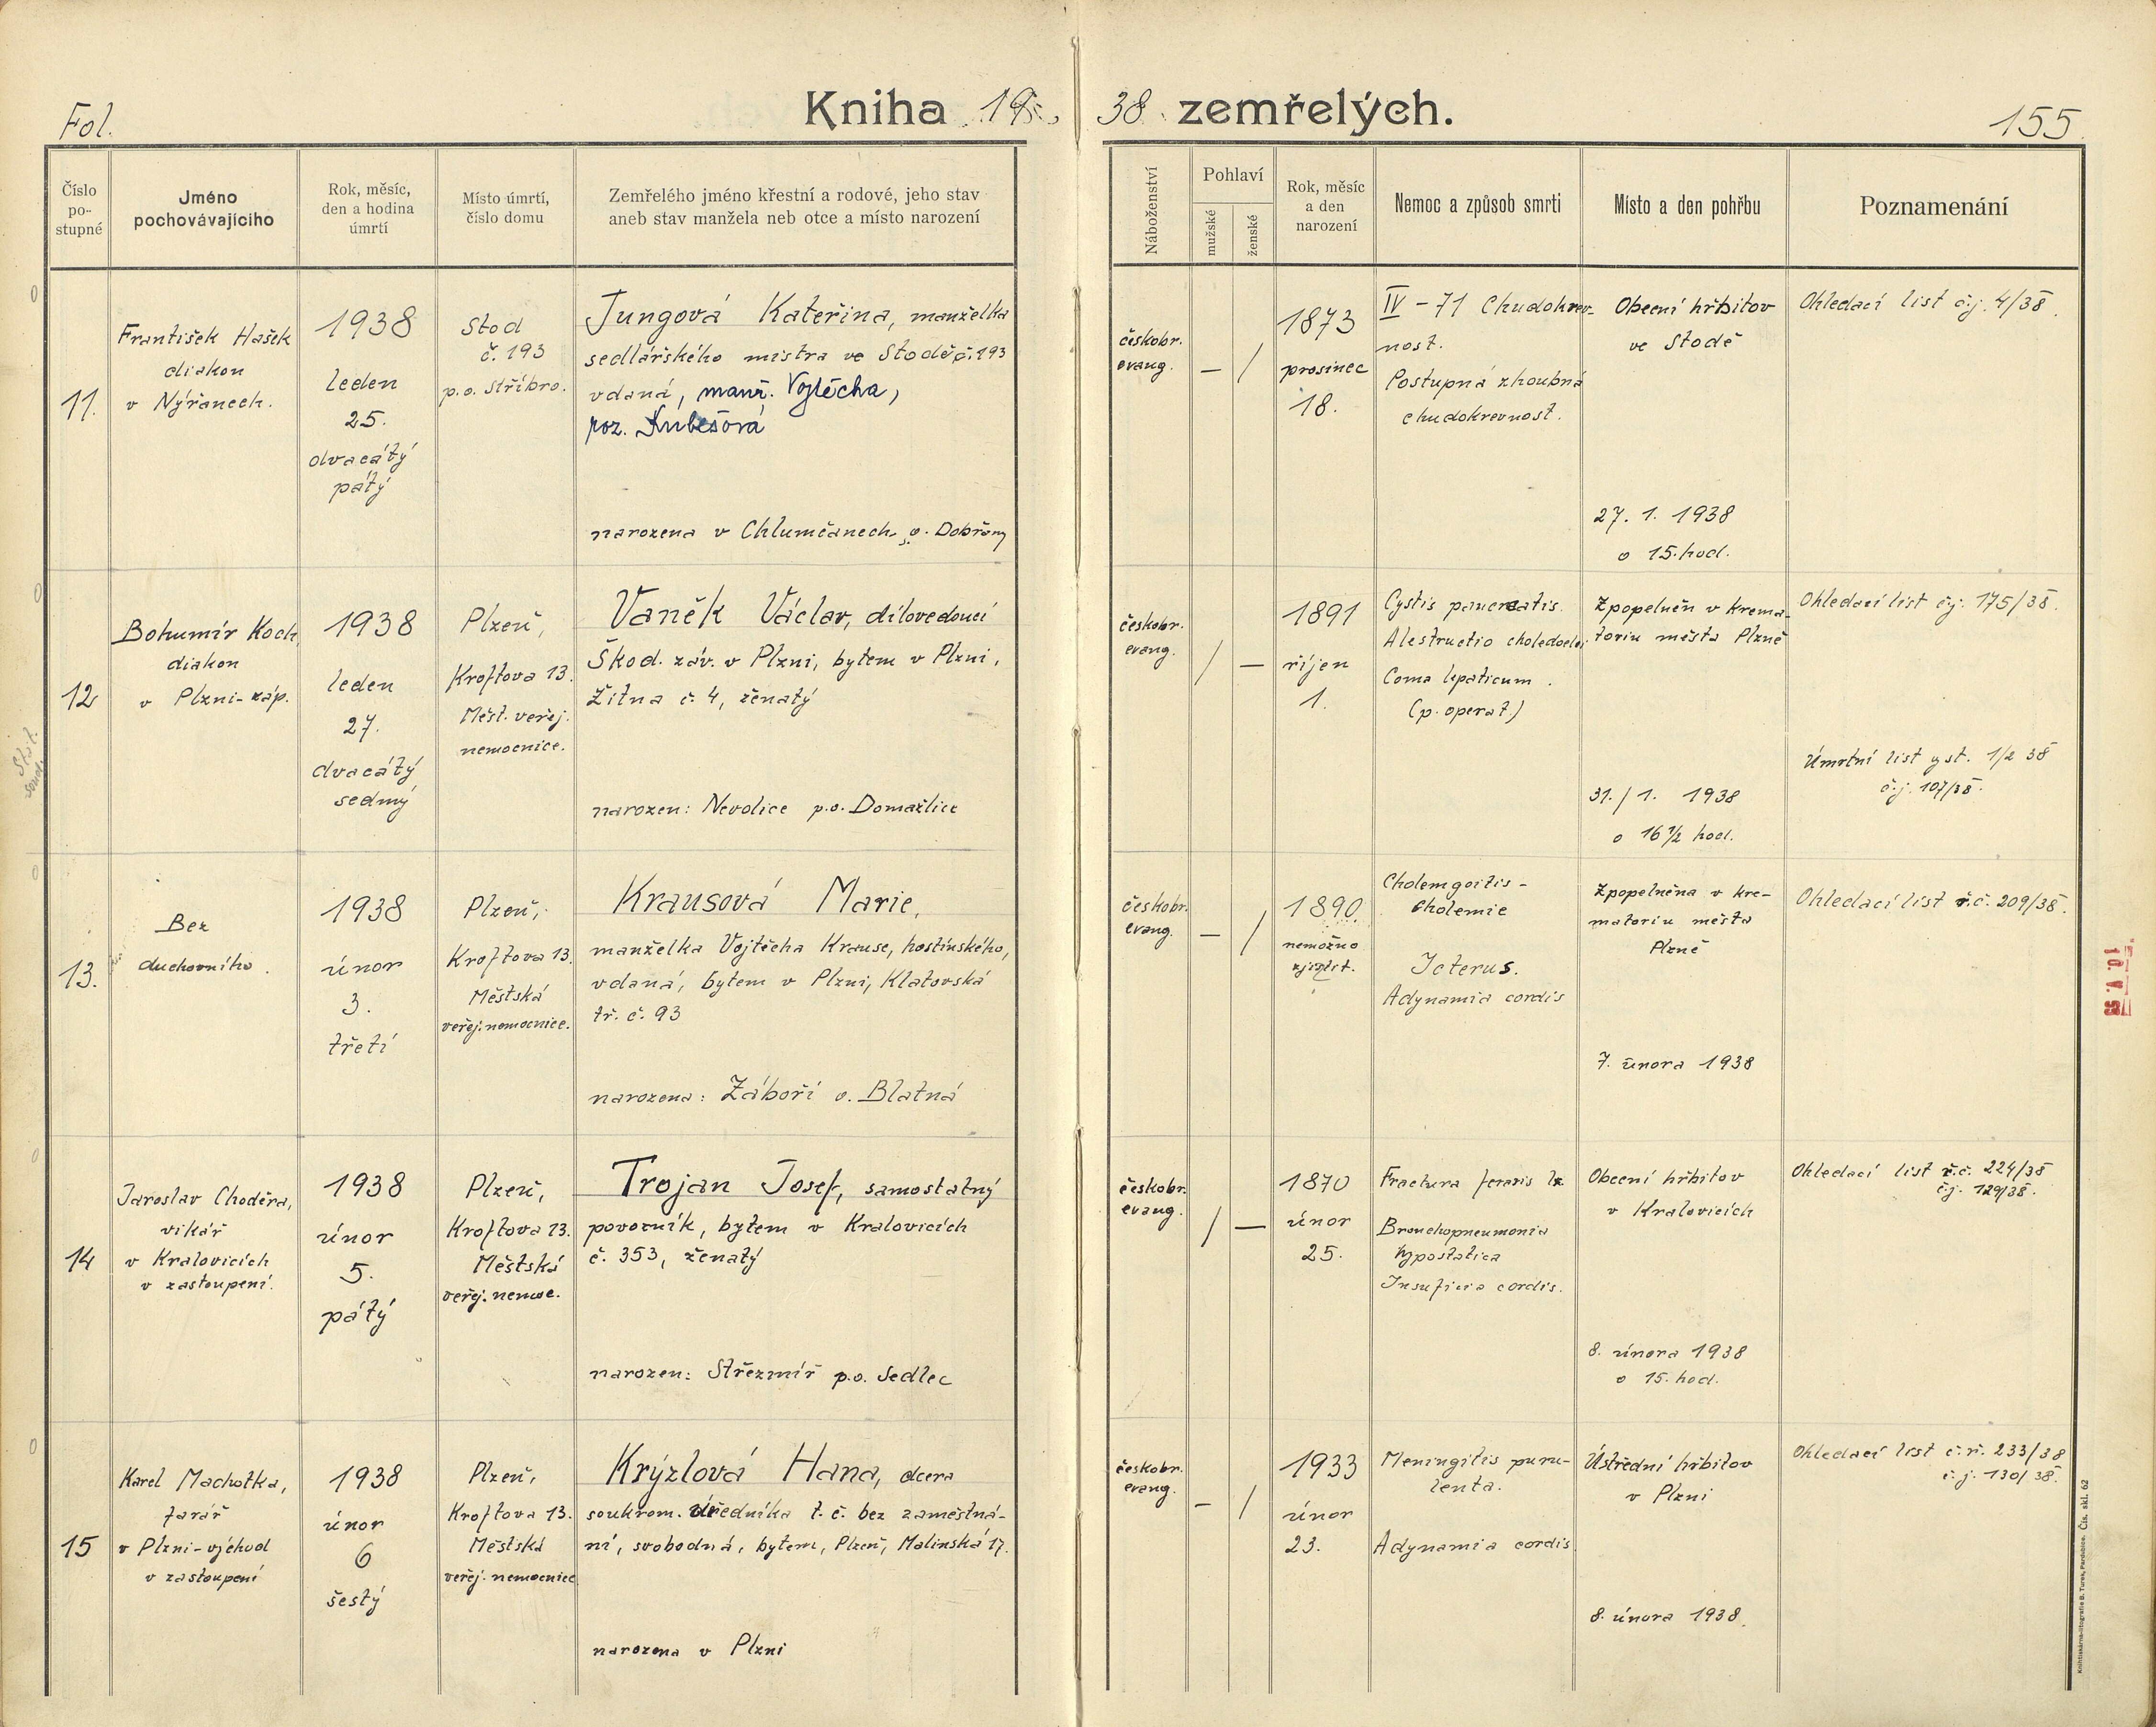 Fol.
Kniha 19 38 zemřelých.
155
Číslo
po-
stupné
Jméno
pochovávajícího
Rok, měsíc,
den a hodina
úmrtí
Místo úmrtí,
číslo domu
Zemřelého jméno křestní a rodové, jeho stav
aneb stav manžela neb otce a místo narození
Náboženství
Pohlaví
mužské
ženské
Rok, měsíc
a den
narození
Nemoc a způsob smrti
Místo a den pohřbu
Poznamenání
11.
František Hašek
diakon
v Nýřanech.
1938
leden
25.
dvacátý
pátý
Stod
č. 193
p.o. Stříbro.
Jungová Kateřina, manželka
sedlářského mistra ve Stodě č. 193
vdaná, manž. Vojtěcha,
roz. Kubešová
narozena v Chlumčanech, o. Dobřany
českobr.
evang.
— /
1873
prosinec
18.
IV - 71 Chudokrev-
nost.
Postupná zhoubná
chudokrevnost.
Obecní hřbitov
ve Stodě
27. 1. 1938
o 15. hod.
Ohledací list č.j. 4/38.
12
Bohumír Koch,
diakon
v Plzni-záp.
1938
leden
27.
dvacátý
sedmý
Plzeň,
Kroftova 13.
Měst. veřej.
nemocnice.
Vaněk Václav, dílovedoucí
Škod. záv. v Plzni, bytem v Plzni,
Žitna č. 4, ženatý
narozen: Nevolice p.o. Domažlice
českobr.
evang.
/ —
1891
říjen
1.
Cystis pancreatis.
Coma hepaticum.
(p. operat.)
Zpopelněn v krema-
toriu města Plzně
31./1. 1938
o 16 1/2 hod.
Ohledací list č.j. 175/38.
Úmrtní list yst. 1/2 38
č.j. 107/38.
13.
Bez
duchovního.
1938
únor
3.
třetí
Plzeň,
Kroftova 13.
Městská
veřej. nemocnice.
Krausová Marie,
manželka Vojtěcha Krause, hostinského,
vdaná, bytem v Plzni, Klatovská
tř. č. 93
narozena: Záboří o. Blatná
českobr.
evang.
— /
1890.
nemožno
zjistit.
Cholemie
Icterus.
Adynamia cordis
Zpopelněna v kre-
matoriu města
Plzně
7. února 1938
Ohledací list ř.č. 209/38.
14
Jaroslav Choděra,
vikář
v Kralovicích
v zastoupení.
1938
únor
5.
pátý
Plzeň,
Kroftova 13.
Městská
veřej. nemoc.
Trojan Josef, samostatný
povozník, bytem v Kralovicích
č. 353, ženatý
narozen: Střezmíř p.o. Sedlec
českobr.
evang.
/ —
1870
únor
25.
Fractura
Bronchopneumonia
hypostatica
cordis.
Obecní hřbitov
v Kralovicích
8. února 1938
o 15. hod.
Ohledací list ř.č. 224/38
č.j. 129/38.
15
Karel Machotka,
farář
v Plzni-východ
v zastoupení
1938
únor
6
šestý
Plzeň,
Kroftova 13.
Městská
veřej. nemocnice
Krýzlová Hana, dcera
soukrom. úředníka t. č. bez zaměstná-
ní, svobodná, bytem, Plzeň, Malinská 17.
narozena v Plzni
českobr.
evang.
— /
1933
únor
23.
Meningitis puru-
lenta.
Adynamia cordis
Ústřední hřbitov
v Plzni
8. února 1938.
Ohledací list č.ř. 233/38
č.j. 130/38.
Čís. skl. 62